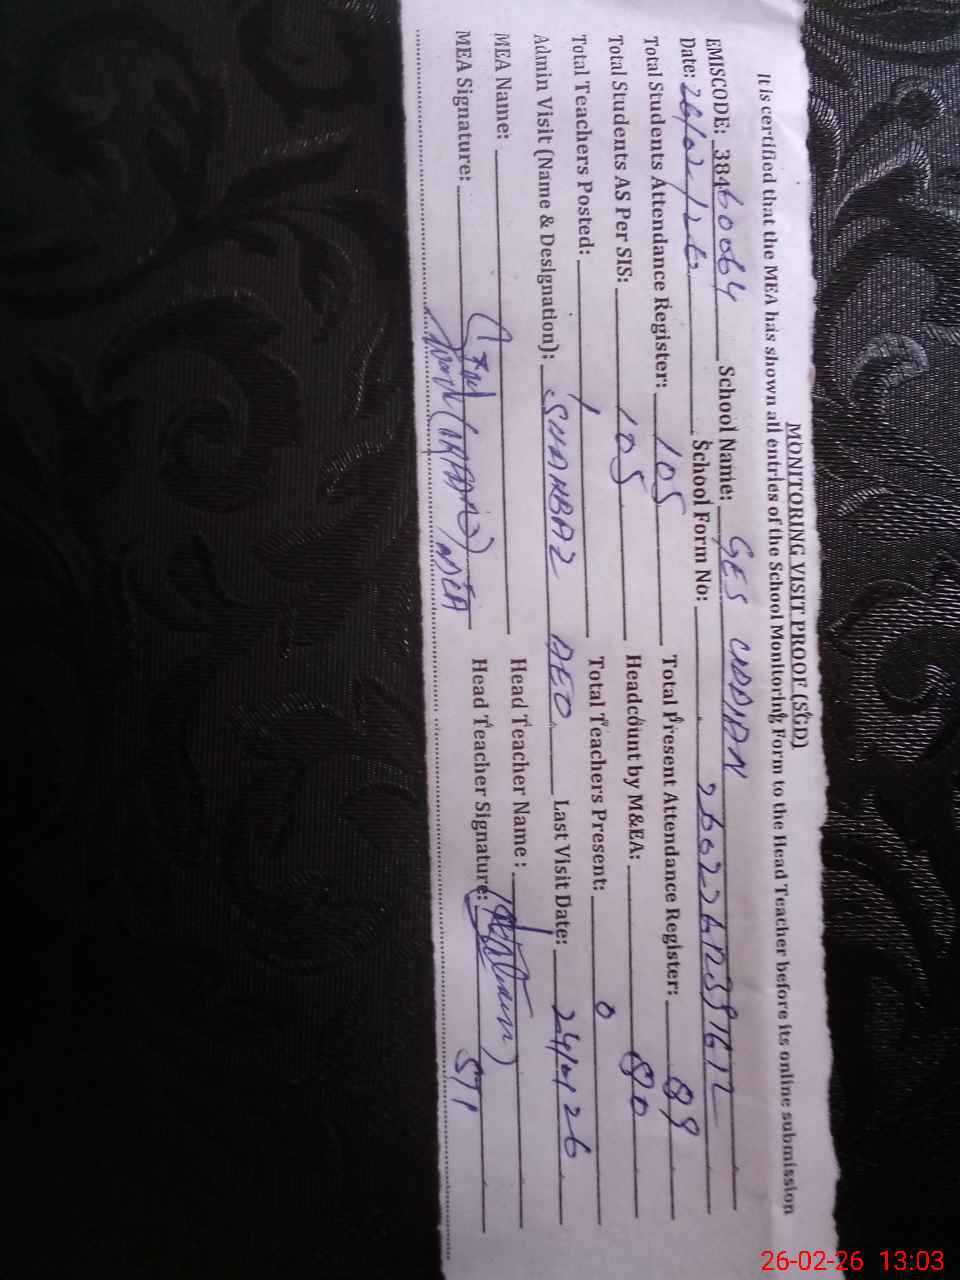 MONITORING VISIT PROOF (SGD)
It is certified that the MEA has shown all entries of the School Monitoring Form to the Head Teacher before its online submission
EMISCODE: 38460064 School Name: GES UDDIAN
Date: 26/02/26 School Form No:
Total Students Attendance Register: 105 Total Present Attendance Register: 89
Total Students AS Per SIS: 105 Headcount by M&EA: 80
Total Teachers Posted: 1 Total Teachers Present: 0
Admin Visit (Name & Designation): SHAHBAZ AEO Last Visit Date: 24/
MEA Name: Head Teacher Name :
MEA Signature: MEA Head Teacher Signature: STI
26-02-26 13:03